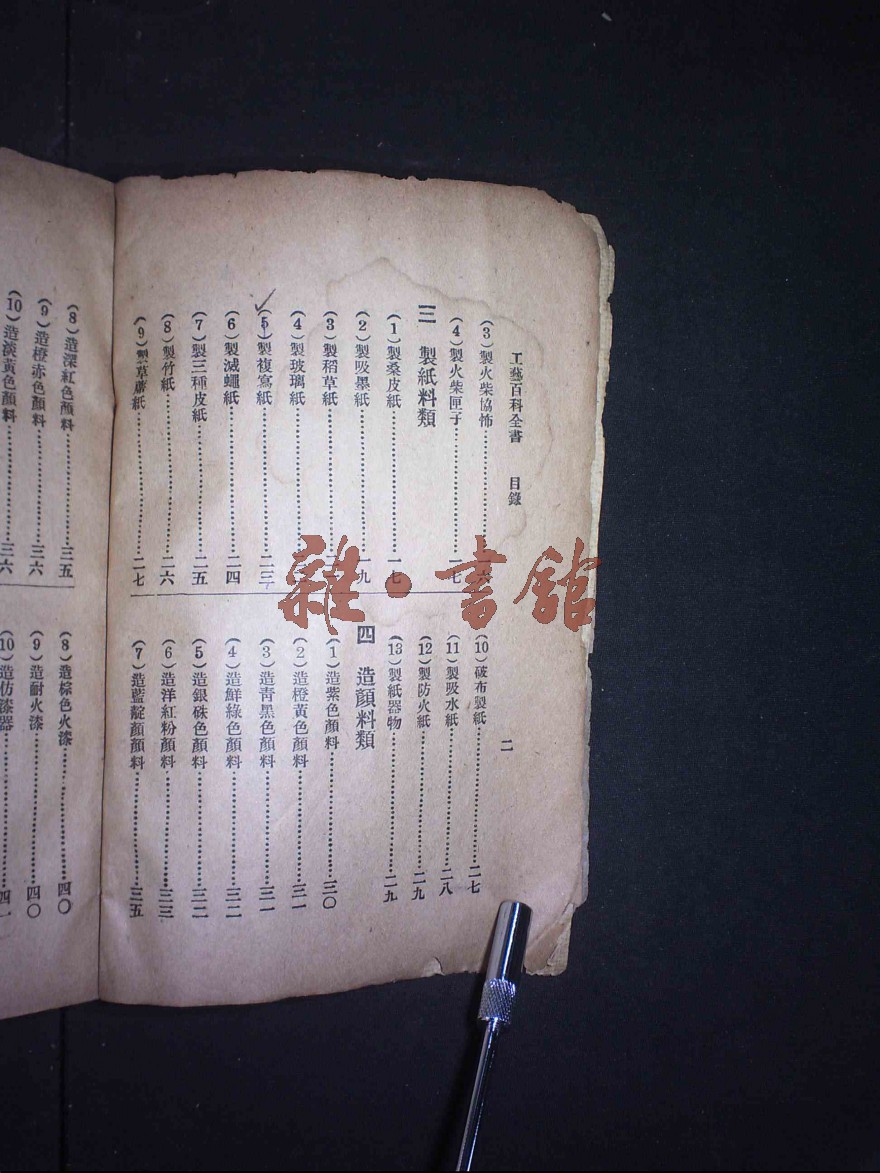 工藝百科全書 目錄
二
(3)製火柴協怖…………六
(4)製火柴匣子…………一七
三 製紙料類
(1)製桑皮紙…………一七
(2)製吸墨紙…………一九
(3)製稻草紙…………
(4)製玻璃紙…………
(5)製複寫紙…………二三
(6)製滅蠅紙…………二四
(7)製三種皮紙…………二五
(8)製竹紙…………二六
(9)製草蓆紙…………二七
(10)破布製紙…………二七
(11)製吸水紙…………二八
(12)製防火紙…………二九
(13)製紙器物…………二九
四 造顏料類
(1)造紫色顏料…………三〇
(2)造橙黃色顏料…………三一
(3)造青黑色顏料…………三一
(4)造鮮綠色顏料…………三二
(5)造銀硃色顏料…………三二
(6)造洋紅粉顏料…………三三
(7)造藍靛顏顏料…………三五
(8)造深紅色顏料…………三五
(9)造橙赤色顏料…………三六
(10)造淡黃色顏料…………三六
(8)造棕色火漆…………四〇
(9)造耐火漆…………四〇
(10)造仿漆器…………四一
雜·書館